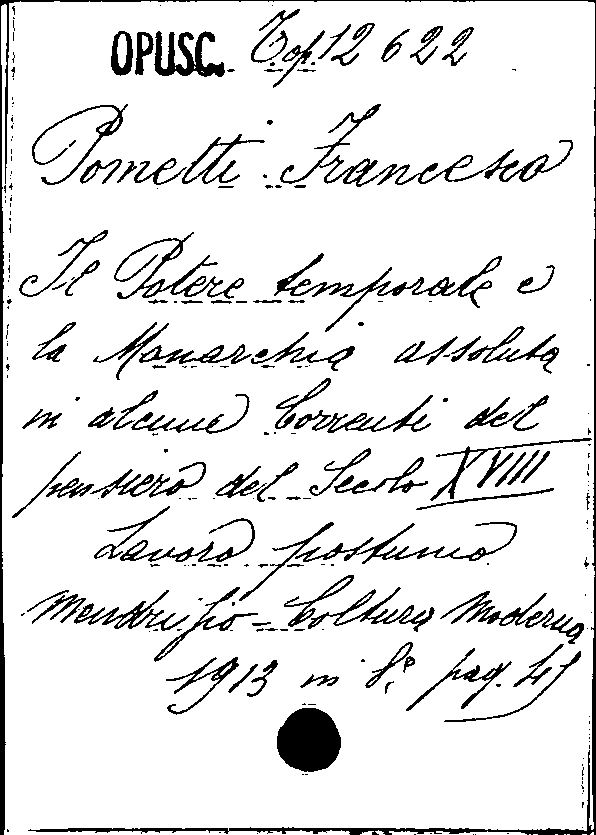 OPUSC. Top. 12 622
Pometti Francesco
Il Potere temporale e
la Monarchia assoluta
in alcune Correnti del
pensiero del Secolo XVIII
Lavoro postumo
Mendrisio - Coltura Moderna
1913 in 8° pag.